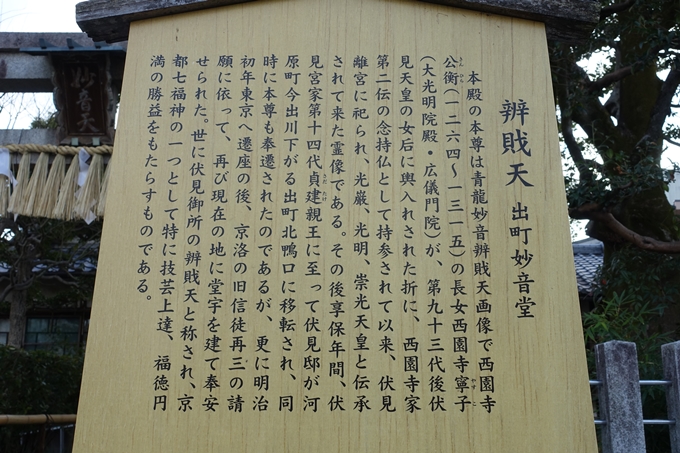 辨財天 出町妙音堂
本殿の本尊は青龍妙音辨財天画像で西園寺
公衡(一二六四〜一三一五)の長女西園寺寧子
(大光明院殿・広儀門院)が、第九十三代後伏
見天皇の女后に輿入れされた折に、西園寺家
第二伝の念持仏として持参されて以来、伏見
離宮に祀られ、光厳、光明、崇光天皇と伝承
されて来た霊像である。その後享保年間、伏
見宮家第十四代貞建親王に至って伏見邸が河
原町今出川下がる出町北鴨口に移転され、同
時に本尊も奉遷されたのであるが、更に明治
初年東京へ遷座の後、京洛の旧信徒再三の請
願に依って、再び現在の地に堂宇を建て奉安
せられた。世に伏見御所の辨財天と称され、京
都七福神の一つとして特に技芸上達、福徳円
満の勝益をもたらすものである。
妙音天